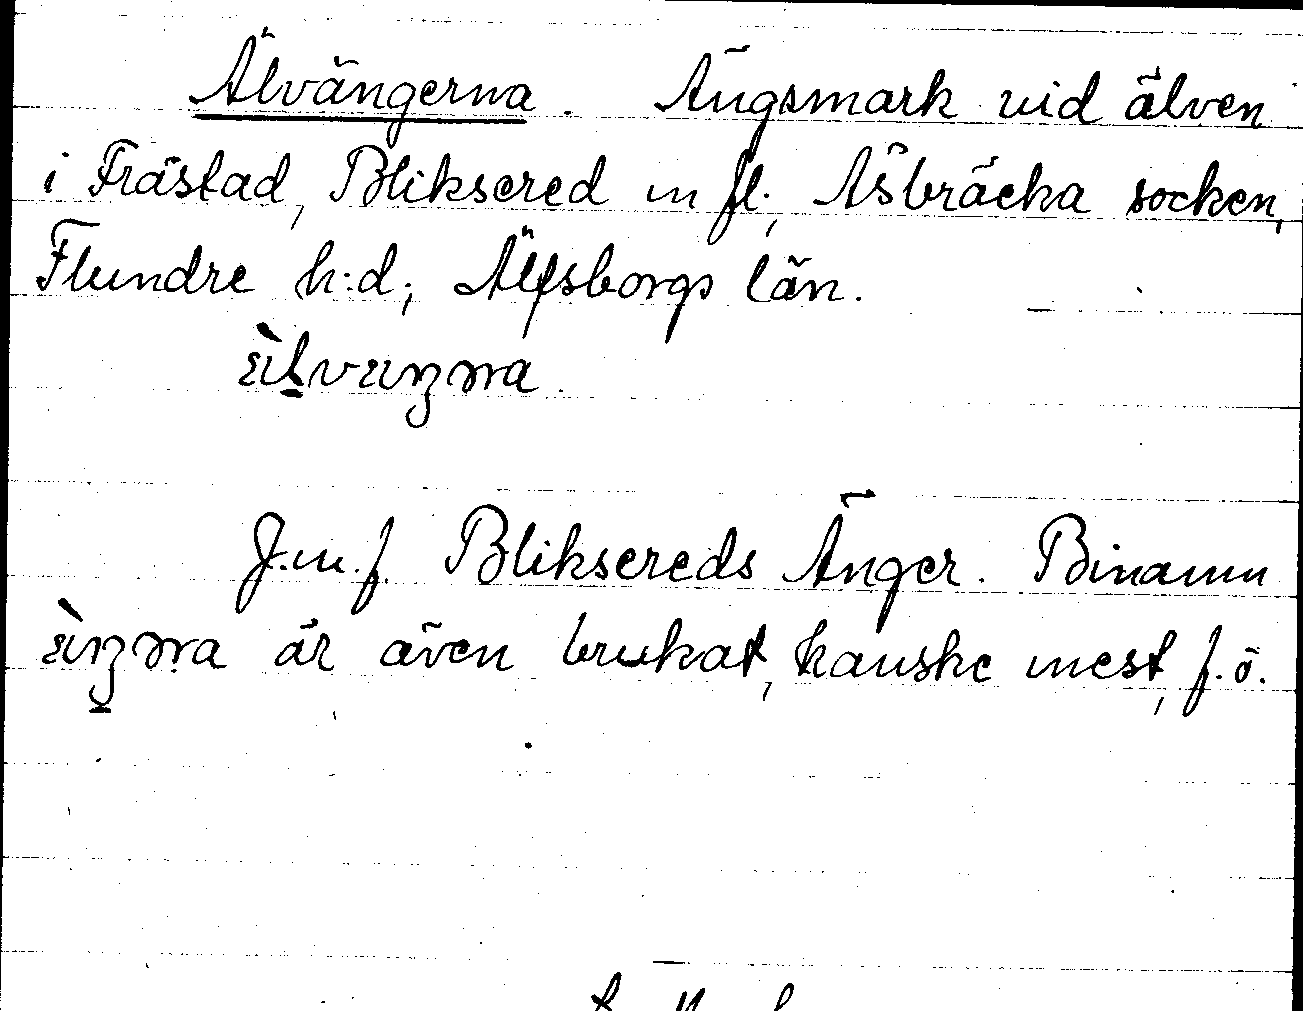 Älvängerna. Ängsmark vid älven
i Frästad, Bliksered m fl., Åsbräcka socken,
Flundre h:d, Älfsborgs län.
J.m.f. Bliksereds Änger. Binamn
är även brukat, kanske mest, f.ö.